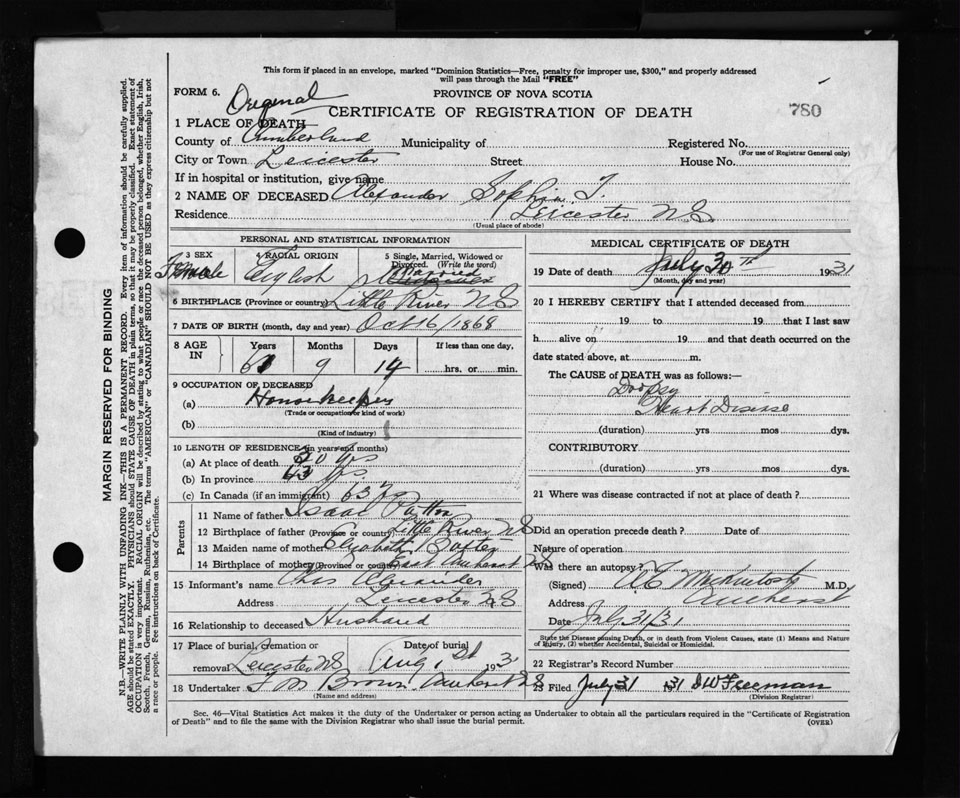 This form if placed in an envelope, marked "Dominion Statistics—Free, penalty for improper use, $300," and properly addressed
will pass through the Mail "FREE"
FORM 6.
Original
PROVINCE OF NOVA SCOTIA
CERTIFICATE OF REGISTRATION OF DEATH
780
1 PLACE OF DEATH
County of Cumberland Municipality of Registered No.
(For use of Registrar General only)
City or Town Leicester Street House No.
If in hospital or institution, give name
2 NAME OF DECEASED Alexander Sophia T.
Residence Leicester NS
(Usual place of abode)
PERSONAL AND STATISTICAL INFORMATION
3 SEX Female
4 RACIAL ORIGIN English
5 Single, Married, Widowed or Divorced. (Write the word) Married
6 BIRTHPLACE (Province or country) Little River NS
7 DATE OF BIRTH (month, day and year) Oct 16/1868
8 AGE IN Years Months Days If less than one day,
9 14 hrs. or min.
9 OCCUPATION OF DECEASED
(a) Housekeeper
(Trade or occupation or kind of work)
(b)
(Kind of industry)
10 LENGTH OF RESIDENCE (in years and months)
(a) At place of death yrs
(b) In province 63 yrs
(c) In Canada (if an immigrant) 63 yrs
Parents
11 Name of father Isaac Patton
12 Birthplace of father (Province or country) Little River NS
13 Maiden name of mother Elizabeth Baxter
14 Birthplace of mother (Province or country) East Amherst NS
15 Informant's name Chas Alexander
Address Leicester NS
16 Relationship to deceased Husband
17 Place of burial, Cremation or removal Leicester NS Date of burial Aug 1st 1931
18 Undertaker F M Brown Amherst NS
(Name and address)
MEDICAL CERTIFICATE OF DEATH
19 Date of death July 30th 1931
(Month, day and year)
20 I HEREBY CERTIFY that I attended deceased from
19 to 19 that I last saw
h alive on 19 and that death occurred on the
date stated above, at m.
The CAUSE of DEATH was as follows:—
Dropsy
Heart Disease
(duration) yrs mos dys.
CONTRIBUTORY
(duration) yrs mos dys.
21 Where was disease contracted if not at place of death?
Did an operation precede death? Date of
Nature of operation
Was there an autopsy?
(Signed) MacKintosh M.D.
Address Amherst
Date July 31/31
State the Disease causing Death, or in death from Violent Causes, state (1) Means and Nature
of Injury, (2) whether Accidental, Suicidal or Homicidal.
22 Registrar's Record Number
23 Filed July 31 1931 Freeman
(Division Registrar)
Sec. 46—Vital Statistics Act makes it the duty of the Undertaker or person acting as Undertaker to obtain all the particulars required in the "Certificate of Registration
of Death" and to file the same with the Division Registrar who shall issue the burial permit.
(OVER)
MARGIN RESERVED FOR BINDING
N.B.—WRITE PLAINLY WITH UNFADING INK—THIS IS A PERMANENT RECORD. Every item of information should be carefully supplied.
AGE should be stated EXACTLY. PHYSICIANS should STATE CAUSE OF DEATH in plain terms, so that it may be properly classified. Exact statement of
OCCUPATION is very important. RACIAL ORIGIN will be described by stating to what people or race the deceased person belonged, whether English, Irish,
Scotch, French, German, Russian, Ruthenian, etc. The terms "AMERICAN" or "CANADIAN" SHOULD NOT BE USED as they express citizenship but not
a race or people. See instructions on back of Certificate.